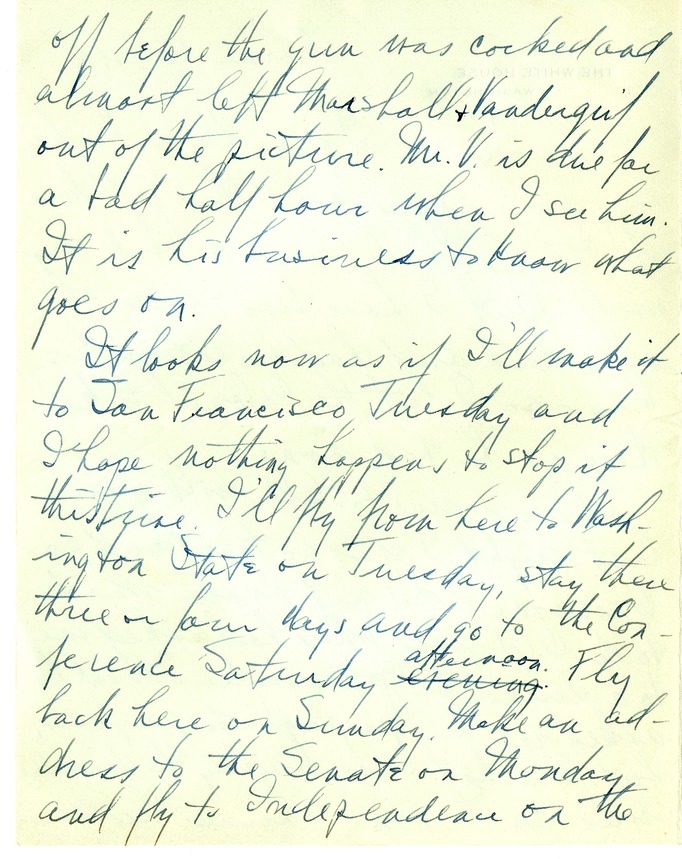 off before the gun was cocked and
almost left Marshall & Vandergrif
out of the picture. Mr. V. is due for
a bad half hour when I see him.
It is his business to know what
goes on.
It looks now as if I'll make it
to San Francisco Tuesday and
I hope nothing happens to stop it
this time. I'll fly from here to Wash-
ington State on Tuesday, stay there
three or four days and go to the Con-
ference Saturday evening. afternoon. Fly
back here on Sunday. Make an ad-
dress to the Senate on Monday
and fly to Independence on the